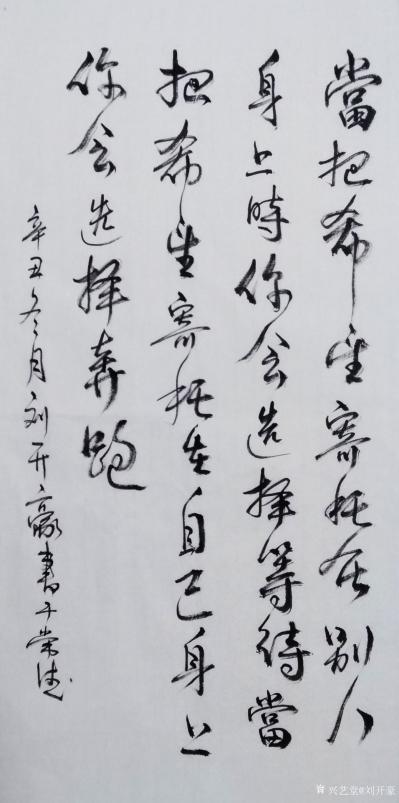 當把希望寄托在别人
身上時你会选择等待當
把希望寄托在自己身上
你会选择奔跑
辛丑冬月刘开豪書于常德
兴艺堂@刘开豪